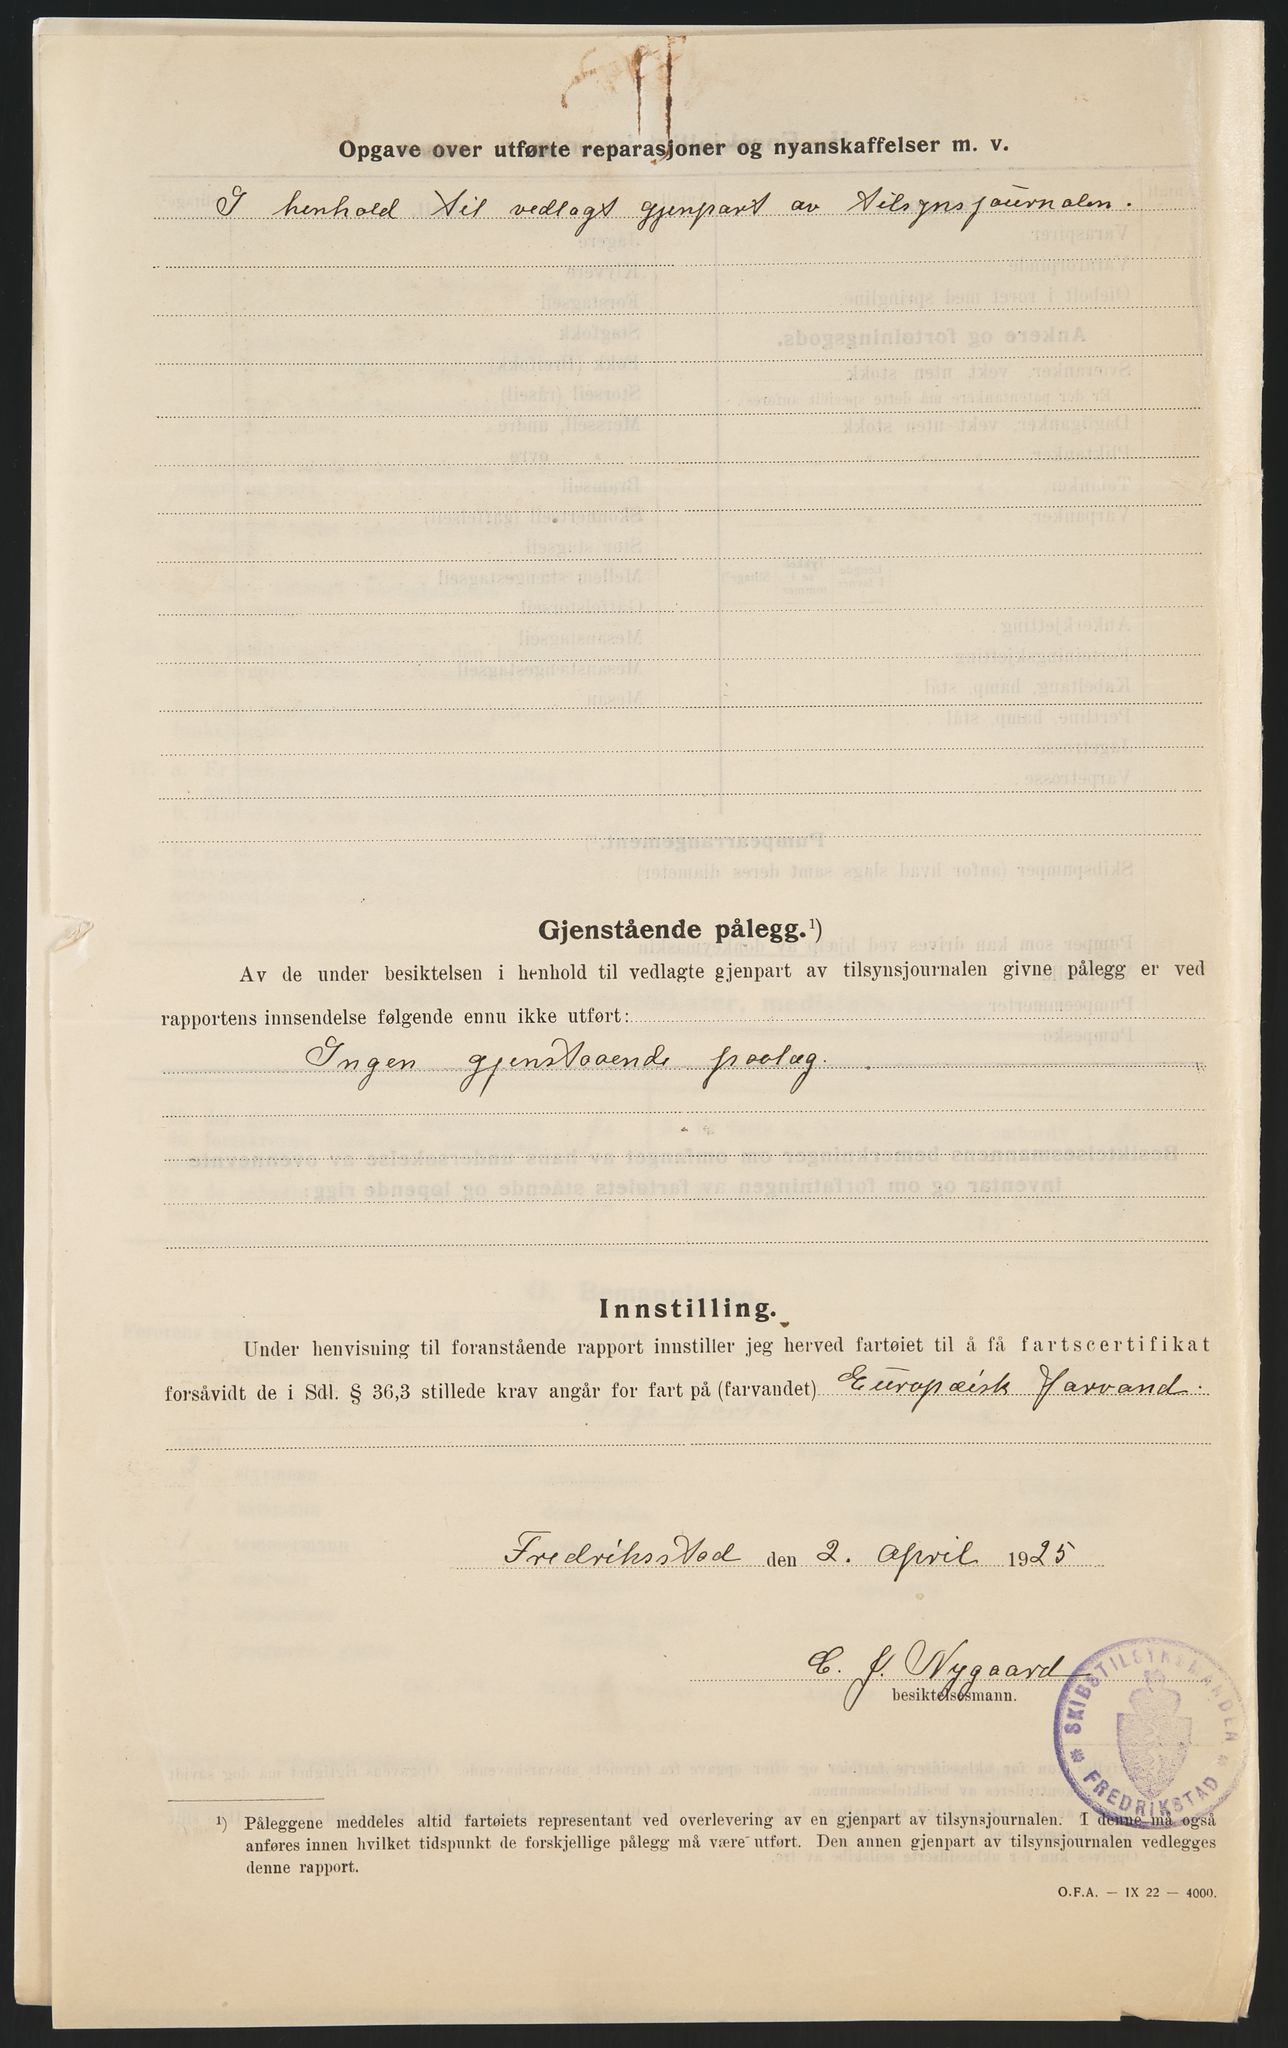 Opgave over utførte reparasjoner og nyanskaffelser m. v.
I henhold til vedlagt gjenpart av tilsynsjournalen.
Gjenstående pålegg.¹)
Av de under besiktelsen i henhold til vedlagte gjenpart av tilsynsjournalen givne pålegg er ved
rapportens innsendelse følgende ennu ikke utført:
Ingen gjenstaaende paalæg.
Innstilling.
Under henvisning til foranstående rapport innstiller jeg herved fartøiet til å få fartscertifikat
forsåvidt de i Sdl. § 36,3 stillede krav angår for fart på (farvandet) Europæisk Farvand.
Fredriksstad den 2. April 1925
C. J. Nygaard
besiktelsesmann.
SKIBSTILSYNSMANDEN
* FREDRIKSTAD *
¹) Påleggene meddeles altid fartøiets representant ved overlevering av en gjenpart av tilsynsjournalen. I denne må også
anføres innen hvilket tidspunkt de forskjellige pålegg må være utført. Den annen gjenpart av tilsynsjournalen vedlegges
denne rapport.
O.F.A. — IX 22 — 4000.